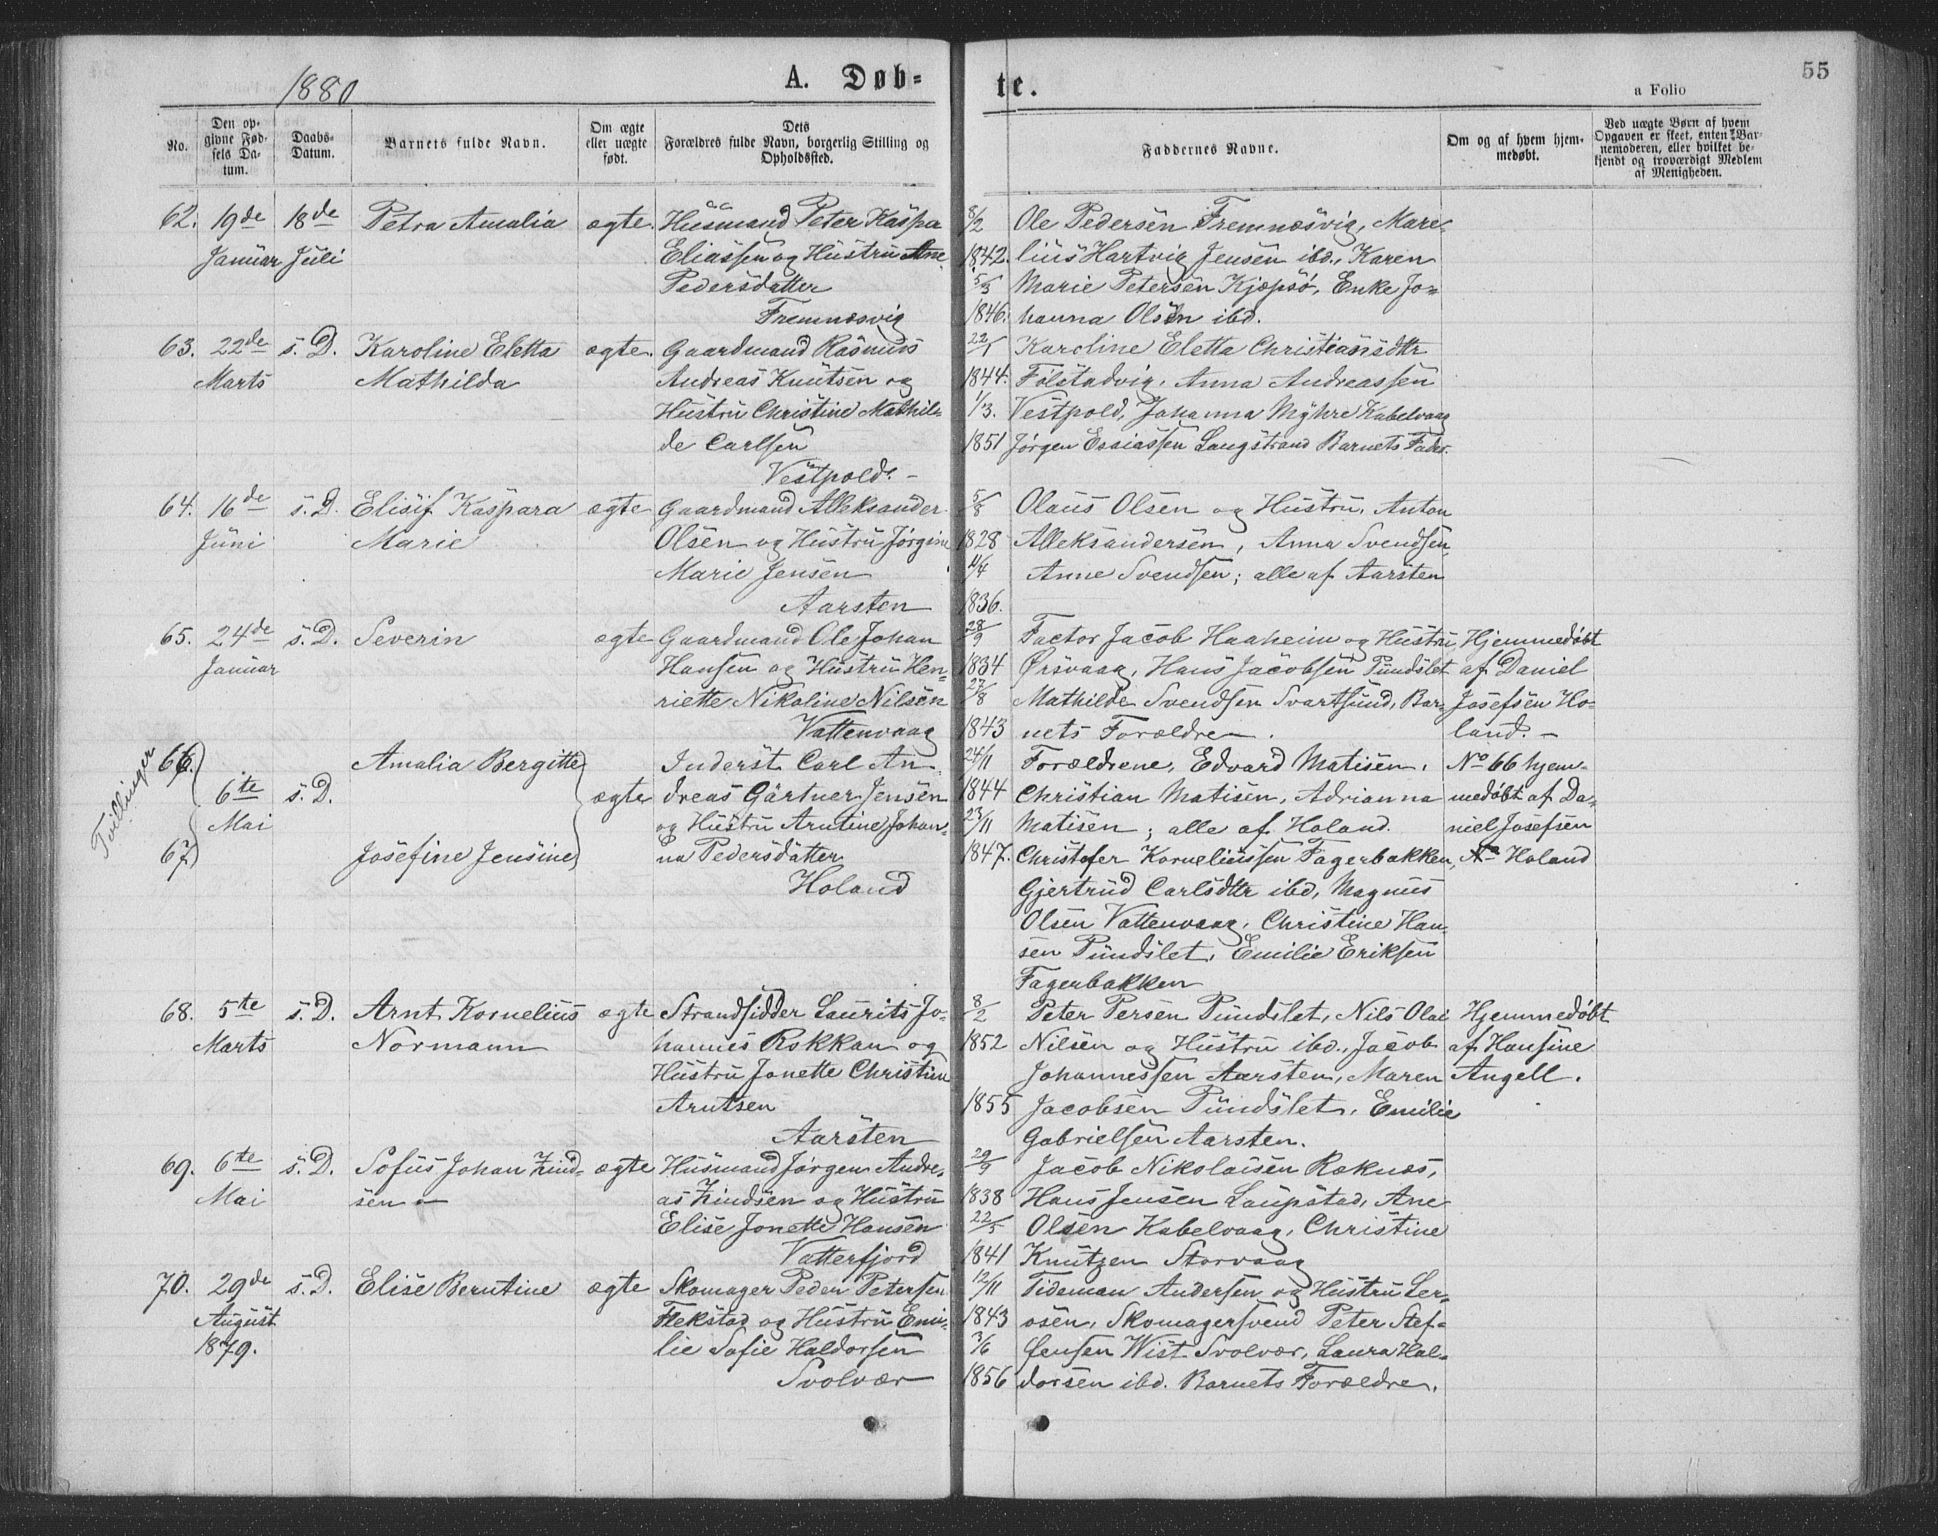 1880
A. Døb-
te.
55
a Folio
No.
Den op-
givne Fød-
sels Da-
tum.
Daabs-
Datum.
Barnets fulde Navn.
Om ægte
eller uægte
født.
Dets
Forældres fulde Navn, borgerlig Stilling og
Opholdssted.
Faddernes Navne.
Om og af hvem hjem-
medøbt.
Ved uægte Børn af hvem
Opgaven er skeet, enten Bar-
nemoderen, eller hvilket be-
kjendt og troværdigt Medlem
af Menigheden.
62. 19de 18de Petra Amalia ægte. Husmand Peter Kaspa 8/2 Ole Pedersen Fremnæsvig, Mare-
Januar Juli Eliassen og Hustru Ane 1842. lius Hartvig Jensen ibd., Karen
Pedersdatter 5/5 Marie Petersen Kjæpsø, Enke Jo-
Fremnæsvig 1846. hanna Olsen ibd.
63. 22de s. D. Karoline Eletta ægte. Gaardmand Rasmus 22/1 Karoline Eletta Christiansdttr
Marts Mathilda Andreas Knutsen og 1844. Følstadvig, Anna Andreassen
Hustru Christine Mathil- 1/3. Vestpold, Johanna Myhre Kabelvaag
de Carlsen 1851 Jørgen Essiassen Langstrand Barnets Fader.
Vestpold. -
64. 16de s. D. Elisif Kaspara ægte Gaardmand Alleksander 5/8 Olaus Olsen og Hustru, Anton
Juni Marie Olsen og Hustru Jørgine 1828 Alleksandersen, Anna Svendsen
Marie Jensen 11/4 Anne Svendsen; alle af Aarsten
Aarsten 1836.
65. 24de s. D. Severin ægte Gaardmand Ole Johan 28/9 Factor Jacob Haaheim og Hustru Hjemmedøbt
Januar Hansen og Hustru Hen- 1834 Ørsvaag, Hans Jacobsen Pundslet af Daniel
riette Nikoline Nilsen 27/8 Mathilde Svendsen Svartsund, Bar- Josefsen Ho-
Vattenvaag 1843 nets Forældre. land. -
Tvillinger
66. Amalia Bergitte Inderst. Carl An- 24/11 Forældrene, Edvard Matisen, No 66 hjem-
6te s. D. ægte dreas Gärtner Jensen 1844 Christian Matisen, Adrianna medøbt af Da-
Mai og Hustru Arntine Johan- 23/11 Matisen; alle af Holand. niel Josefsen
67. Josefine Jensine na Pedersdatter 1847. Christofer Korneliussen Fagerbakken, Holand
Holand Gjertrud Carlsdttr ibd, Magnus
Olsen Vattenvaag, Christine Han-
sen Pundslet, Emilie Eriksen
Fagerbakken
68. 5te s. D. Arnt Kornelius ægte Strandsidder Laurits Jo- 8/2 Peter Persen Pundslet, Nils Olai Hjemmedøbt
Marts Normann hannes Rokkan og 1852 Nilsen og Hustru ibd., Jacob af Hansine
Hustru Jonette Christine Johannessen Aarsten, Maren Angell.
Arntsen 1855 Jacobsen Pundslet, Emilie
Aarsten Gabrielsen Aarsten.
69. 6te s. D. Sofus Johan Zind- ægte Husmand Jørgen Andre- 29/9 Jacob Nikolaisen Reknes,
Mai sen - as Zindsen og Hustru 1838 Hans Jensen Laupstad, Ane
Elise Jonette Hansen 22/5 Olsen Kabelvaag, Christine
Vatterfjord 1841 Knutzen Storvaag
70. 29de s. D. Elise Berntine ægte Skomager Peder Petersen 12/11 Tideman Andersen og Hustru Ler-
August Flekstad og Hustru Emi- 1843 osen, Skomagersvend Peter Stef-
1879. lie Sofie Haldorsen 3/6 fensen Wist Svolvær, Laura Hal-
Svolvær 1856 dorsen ibd. Barnets Forældre.